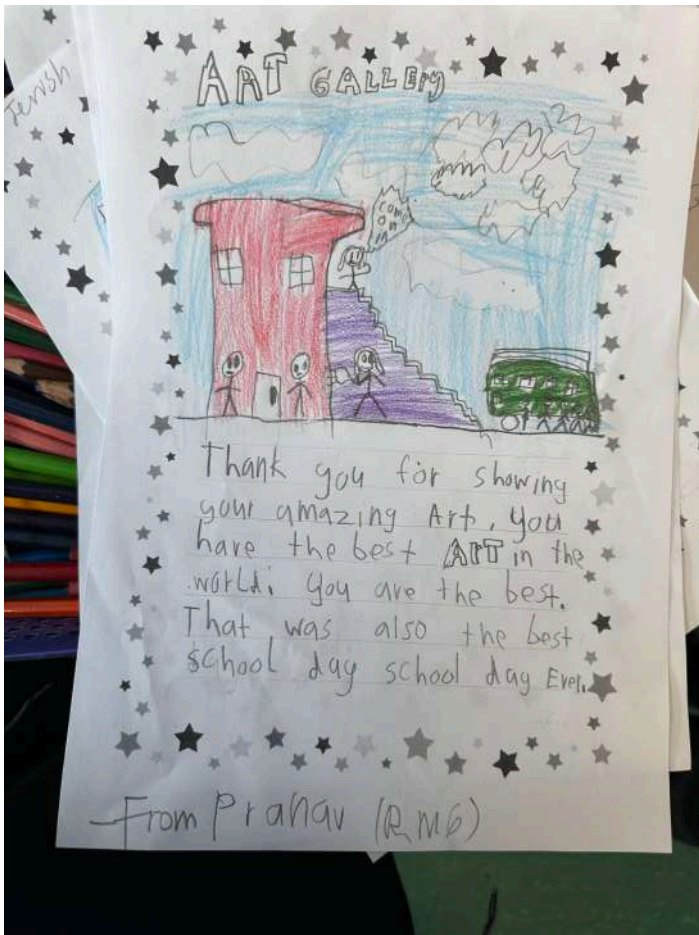 Jenish
ART GALLERY
come
on
in
Thank you for showing
your amazing Art. You
have the best ART in the
world. You are the best.
That was also the best
school day school day Ever.
From Pranav (RM6)